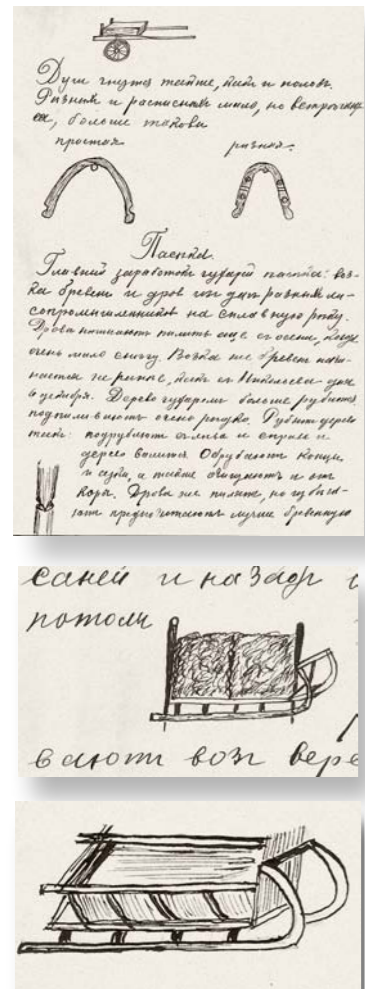 Дуги гнутся также, как и полозья.
Резных и расписных мало, но встречают-
ся, больше таковы
простая резная.
Пастка.
Главный заработок гужарей пастка: воз-
ка бревен и дров или для разных ле-
сопромышленников на сплавную реку.
Дрова начинают пилить еще с осени, когда
очень мало снегу. Возка же бревен начи-
нается не раньше, как с Николаева дня
6 декабря. Дерево гужарем больше рубится,
подпиливают очень редко. Рубит дерево
так: подрубают слева и справа и
дерево валится. Обрубают концы
и сучки, а также очищают и от
коры. Дрова же пилят, но гужа-
ют предпочитают лучше бревенную
саней и назад
потом
вают воз вере